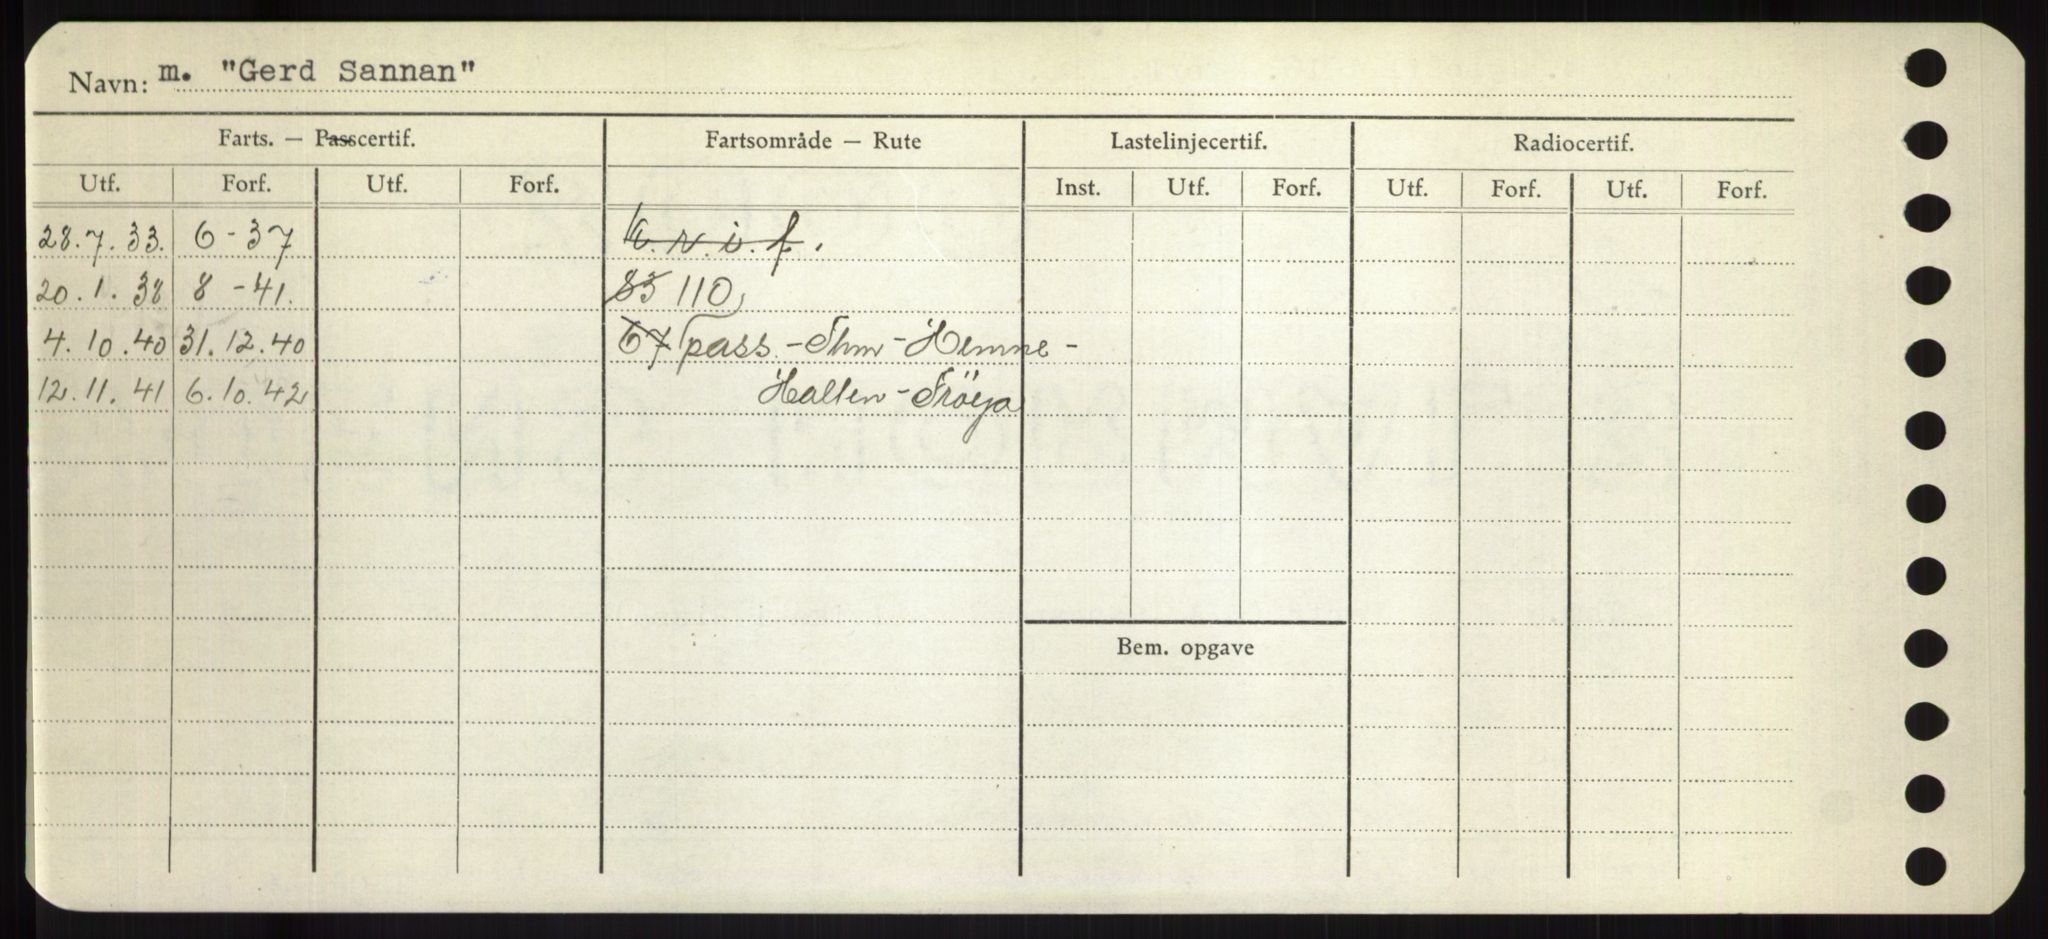 Navn: m. "Gerd Sannan"
Farts. — Passcertif. Fartsområde — Rute Lastelinjecertif. Radiocertif.
Utf. Forf. Utf. Forf. Inst. Utf. Forf. Utf. Forf. Utf. Forf.
28.7.33. 6-37 k.r.i.f.
20.1.38 8-41. 83 110
4.10.40 31.12.40 67 pass - Thm - Hemne -
12.11.41 6.10.42 Halten - Fröya
Bem. opgave